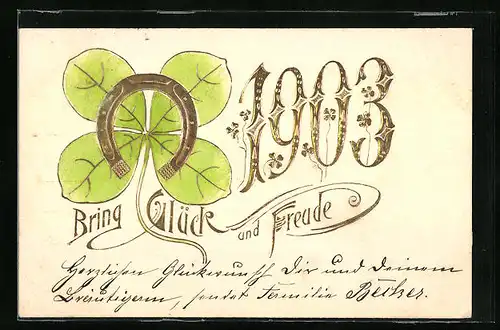 1903
Bring Glück und Freude
Herzlichen Glückwunsch Dir und deinem
Bräutigam, sendet Familie Becker.